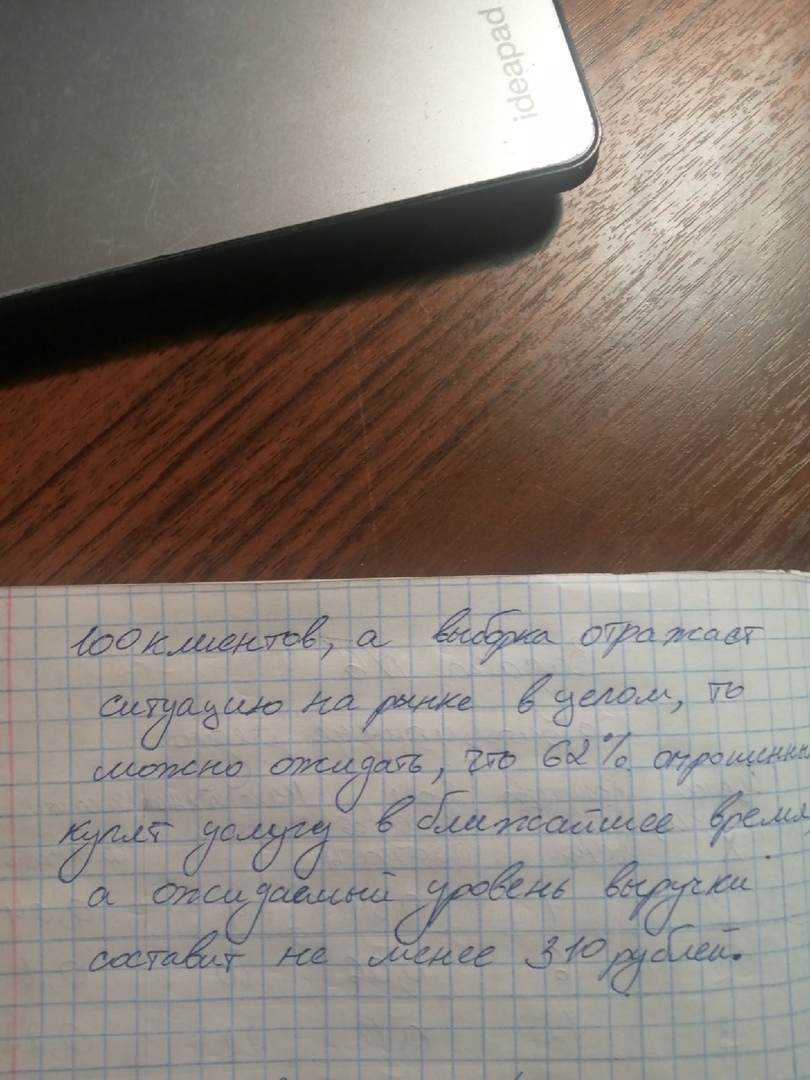 ideapad
100 клиентов, а выборка отражает
ситуацию на рынке в целом, то
можно ожидать, что 62% опрошенных
купят услугу в ближайшее время
а ожидаемый уровень выручки
составит не менее 310 рублей.